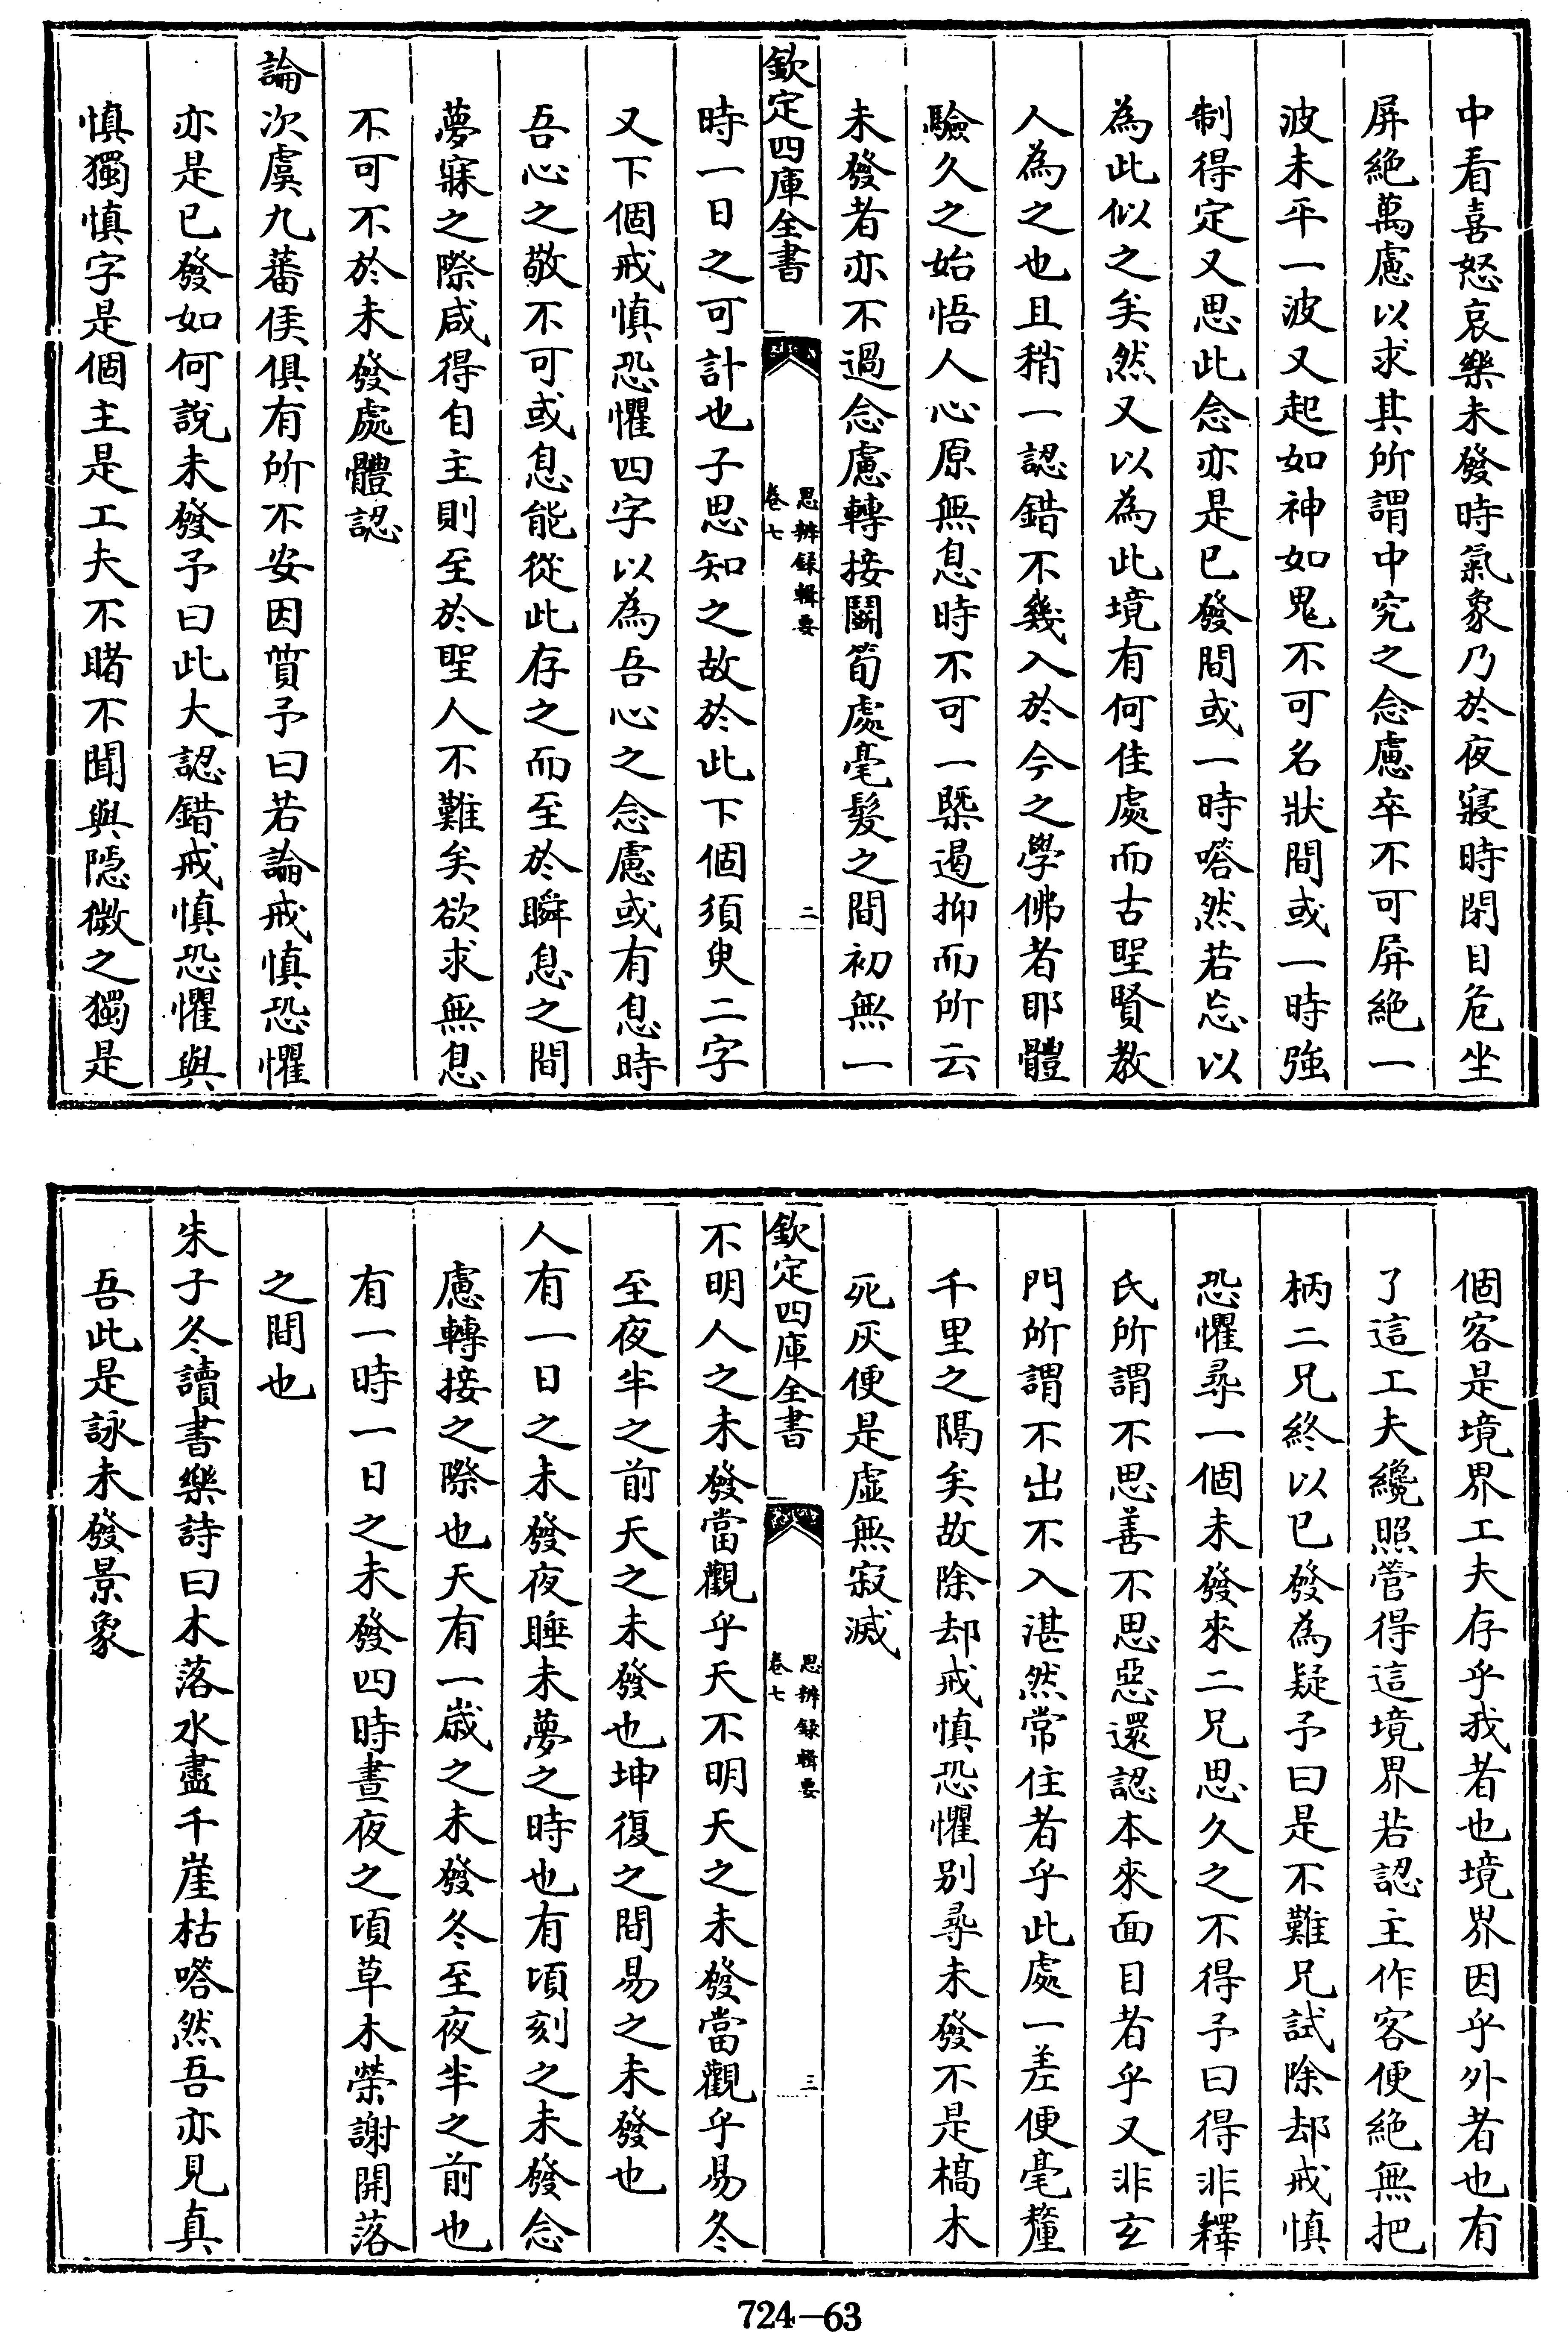 中看喜怒哀樂未發時氣象乃於夜寢時閉目危坐
屏絕萬慮以求其所謂中究之念慮卒不可屏絕一
波未平一波又起如神如鬼不可名狀間或一時強
制得定又思此念亦是已發間或一時嗒然若忘以
為此似之矣然又以為此境有何佳處而古聖賢教
人為之也且稍一認錯不幾入於今之學佛者耶體
驗久之始悟人心原無息時不可一槩遏抑而所云
未發者亦不過念慮轉接鬬筍處毫髮之間初無一
欽定四庫全書
思辨録輯要
卷七
二
時一日之可計也子思知之故於此下個須臾二字
又下個戒慎恐懼四字以為吾心之念慮或有息時
吾心之敬不可或息能從此存之而至於瞬息之間
夢寐之際咸得自主則至於聖人不難矣欲求無息
不可不於未發處體認
論次虞九蕃侯俱有所不安因質予曰若論戒慎恐懼
亦是已發如何說未發予曰此大認錯戒慎恐懼與
慎獨慎字是個主是工夫不睹不聞與隱微之獨是
個客是境界工夫存乎我者也境界因乎外者也有
了這工夫纔照管得這境界若認主作客便絕無把
柄二兄終以已發為疑予曰是不難兄試除却戒慎
恐懼尋一個未發來二兄思久之不得予曰得非釋
氏所謂不思善不思惡還認本來面目者乎又非玄
門所謂不出不入湛然常住者乎此處一差便毫釐
千里之隔矣故除却戒慎恐懼别尋未發不是槁木
死灰便是虛無寂滅
欽定四庫全書
思辨録輯要
卷七
三
不明人之未發當觀乎天不明天之未發當觀乎易冬
至夜半之前天之未發也坤復之間易之未發也
人有一日之未發夜睡未夢之時也有頃刻之未發念
慮轉接之際也天有一歲之未發冬至夜半之前也
有一時一日之未發四時晝夜之頃草木榮謝開落
之間也
朱子冬讀書樂詩曰木落水盡千崖枯嗒然吾亦見真
吾此是詠未發景象
724—63